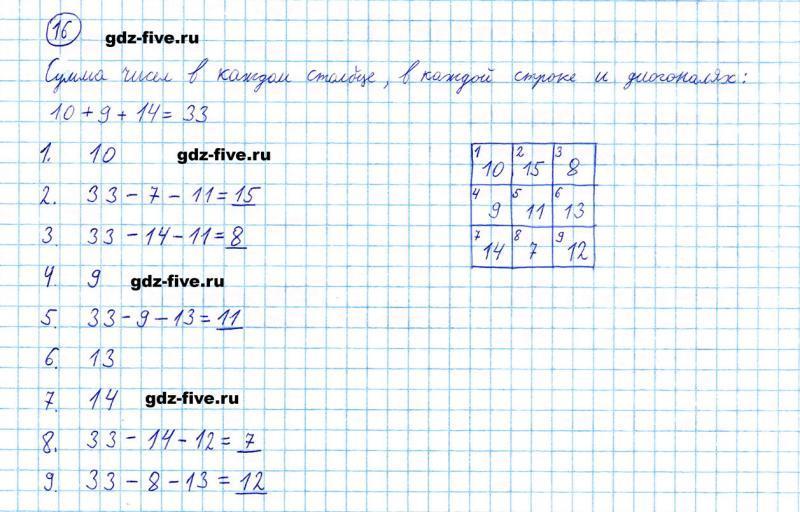 16
gdz-five.ru
Сумма чисел в каждом столбце, в каждой строке и диогоналях:
10 + 9 + 14 = 33
1. 10
gdz-five.ru
2. 33 - 7 - 11 = 15
3. 33 - 14 - 11 = 8
4. 9
gdz-five.ru
5. 33 - 9 - 13 = 11
6. 13
7. 14
gdz-five.ru
8. 33 - 14 - 12 = 7
9. 33 - 8 - 13 = 12
1 2 3
10 15 8
4 5 6
9 11 13
7 8 9
14 7 12